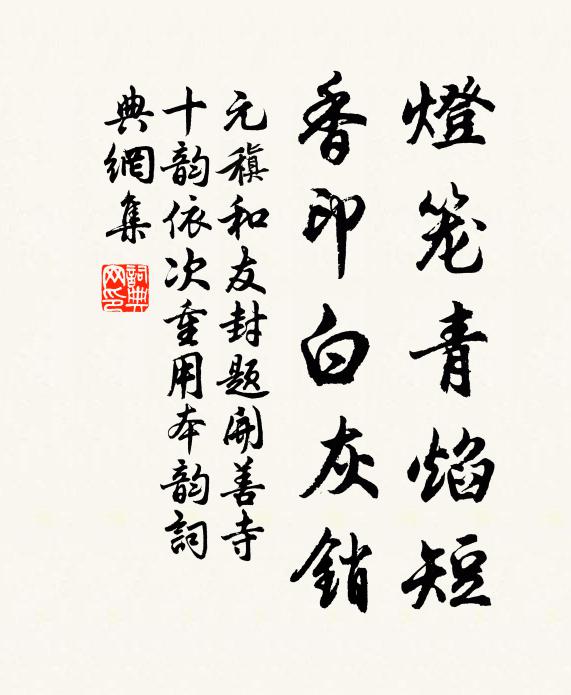 燈笼青焰短
香印白灰銷
元稹和友封题開善寺
十韵依次重用本韵詞
典網集
詞典网印